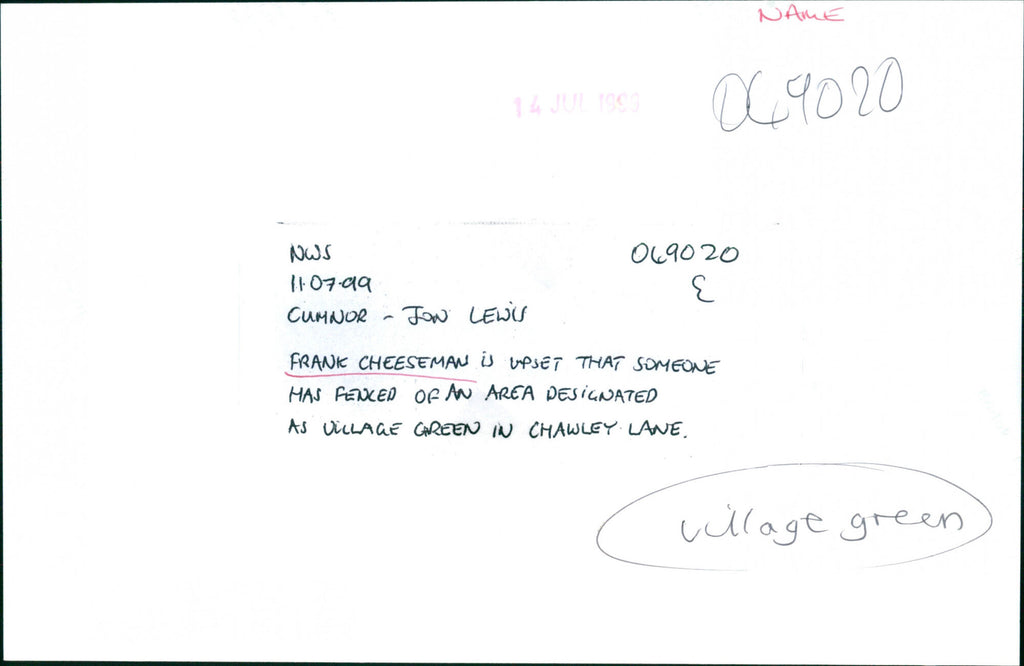 NAME
069020
14 JUL 1999
NWS
069020
11.07.99
E
CUMNOR - JON LEWIS
FRANK CHEESEMAN IS UPSET THAT SOMEONE
HAS FENCED OF AN AREA DESIGNATED
AS VILLAGE GREEN IN CHAWLEY LANE.
village green